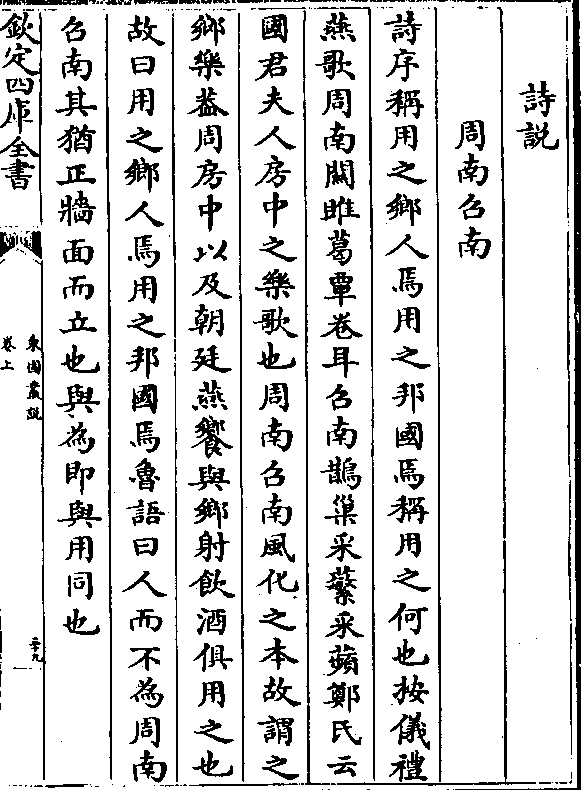 詩説
周南召南
詩序稱用之鄉人焉用之邦國焉稱用之何也按儀禮
燕歌周南關雎葛覃卷耳召南鵲巢采蘩采蘋鄭氏云
國君夫人房中之樂歌也周南召南風化之本故謂之
鄉樂葢周房中以及朝廷燕饗與鄉射飲酒俱用之也
故曰用之鄉人焉用之邦國焉魯語曰人而不為周南
召南其猶正牆面而立也與為即與用同也
欽定四庫全書
東園叢說
卷上
二十九